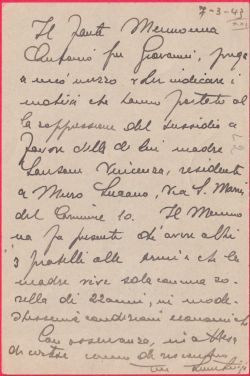 7-3-43
Il fante Mennonna
Antonio fu Giovanni, prega
a mio mezzo voler indicare i
motivi che hanno portato al
la soppressione del sussidio a
favore della di lui madre
Vincenza, residente
a Muro Lucano, Via S. Maria
del Carmine 10. Il Mennon
na fa presente di avere altri
3 fratelli alle armi e che la
madre vive sola con una so
rella di 22 anni, in mode
stissime condizioni economiche
Con osservanza, in attesa
di cortese cenno di riscontro